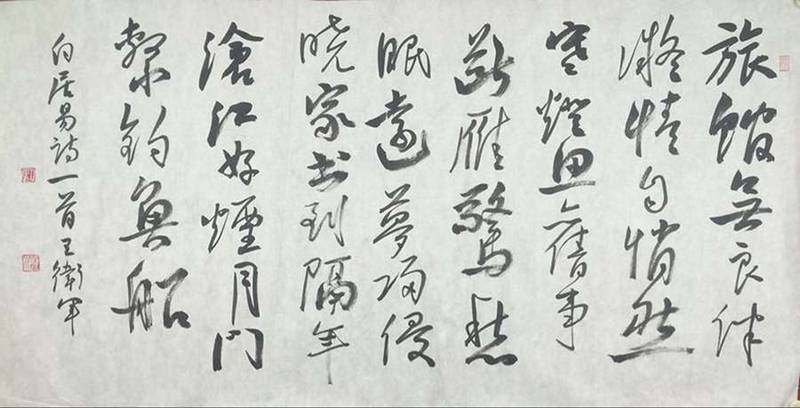 旅館無良伴
凝情自悄然
寒燈思舊事
斷雁驚愁
眠遠夢歸侵
曉家書到隔年
滄江好煙月門
繫釣魚船
白居易詩一首王衛軍